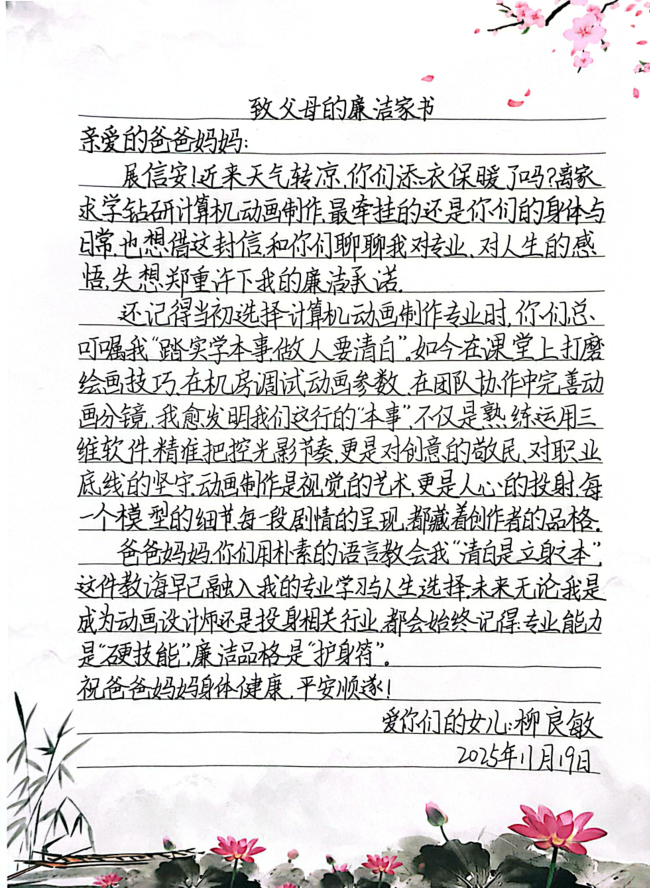 致父母的廉洁家书
亲爱的爸爸妈妈:
展信安!近来天气转凉,你们添衣保暖了吗?离家
求学钻研计算机动画制作,最牵挂的还是你们的身体与
日常,也想借这封信,和你们聊聊我对专业、对人生的感
悟,失想郑重许下我的廉洁承诺.
还记得当初选择计算机动画制作专业时,你们总
叮嘱我“踏实学本事做人要清白”.如今在课堂上打磨
绘画技巧,在机房调试动画参数,在团队协作中完善动
画分镜,我愈发明我们这行的“本事”,不仅是熟练运用三
维软件,精准把控光影节奏,更是对创意的敬民、对职业
底线的坚守.动画制作是视觉的艺术,更是人心的投射,每
一个模型的细节,每一段剧情的呈现,都藏着创作者的品格.
爸爸妈妈,你们用朴素的语言教会我“清白是立身之本”,
这件教诲早已融入我的专业学习与人生选择.未来无论我是
成为动画设计师还是投身相关行业,都会始终记得:专业能力
是“硬技能”,廉洁品格是“护身符”.
祝爸爸妈妈身体健康,平安顺遂!
爱你们的女儿:柳良敏
2025年11月19日